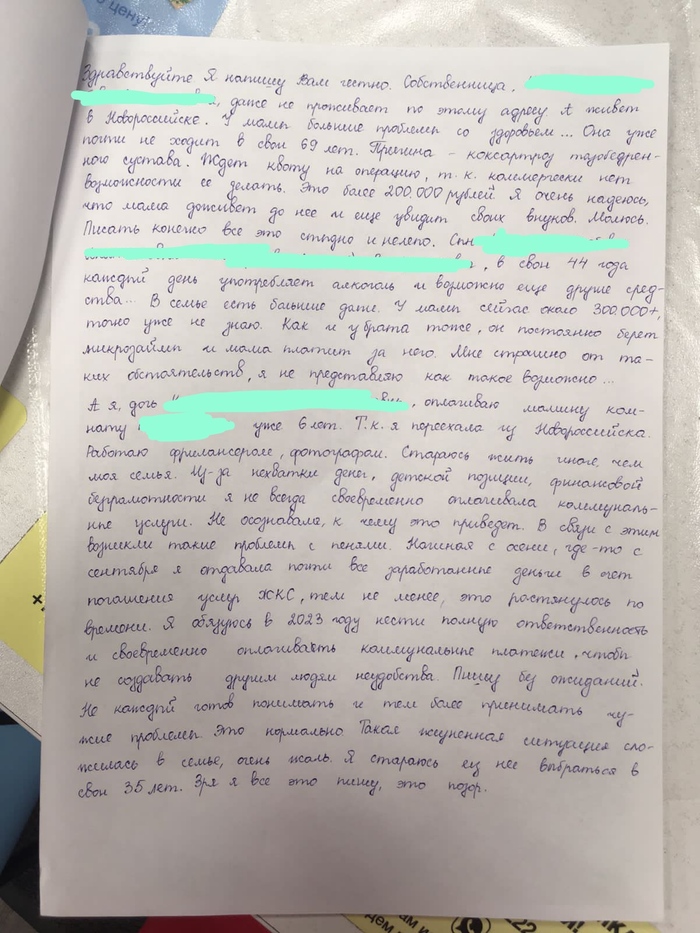 цену!
Здравствуйте Я напишу Вам честно. Собственница,
, даже не проживает по этому адресу А живет
в Новороссийске. У мамы большие проблемы со здоровьем... Она уже
почти не ходит в свои 69 лет. Причина - коксартроз тазобедрен-
ного сустава. Ждет квоту на операцию, т.к. коммерчески нет
возможности ее делать. Это более 200.000 рублей Я очень надеюсь,
что мама доживет до нее и еще увидит своих внуков. Молюсь.
Писать конечно все это стыдно и нелепо. Сын
, в свои 44 года
каждый день употребляет алкоголь и возможно еще другие сред-
ства... В семье есть большие долги. У мамы сейчас около 300.000+,
точно уже не знаю. Как и у брата тоже, он постоянно берет
микрозаймы и мама платит за него. Мне страшно от та-
ких обстоятельств, я не представляю как такое возможно...
А я, дочь , оплачиваю мамину ком-
нату уже 6 лет. Т.к. я переехала из Новороссийска.
Работаю фрилансером, фотографом. Стараюсь жить иначе, чем
моя семья. Из-за нехватки денег, детской позиции, финансовой
безграмотности я не всегда своевременно оплачивала коммуналь-
ные услуги. Не осознавала, к чему это приведет. В связи с этим
возникли такие проблемы с пенями. Начиная с осени, где-то с
сентября я отдавала почти все заработанные деньги в счет
погашения услуг ЖКС, тем не менее, это растянулось по
времени. Я обязуюсь в 2023 году нести полную ответственность
и своевременно оплачивать коммунальные платежи, чтобы
не создавать другим людям неудобства. Пишу без ожиданий.
Не каждый готов понимать и тем более принимать чу-
жие проблемы Это нормально. Такая жизненная ситуация сло-
жилась в семье, очень жаль. Я стараюсь из нее выбраться в
свои 35 лет. Зря я все это пишу, это позор.